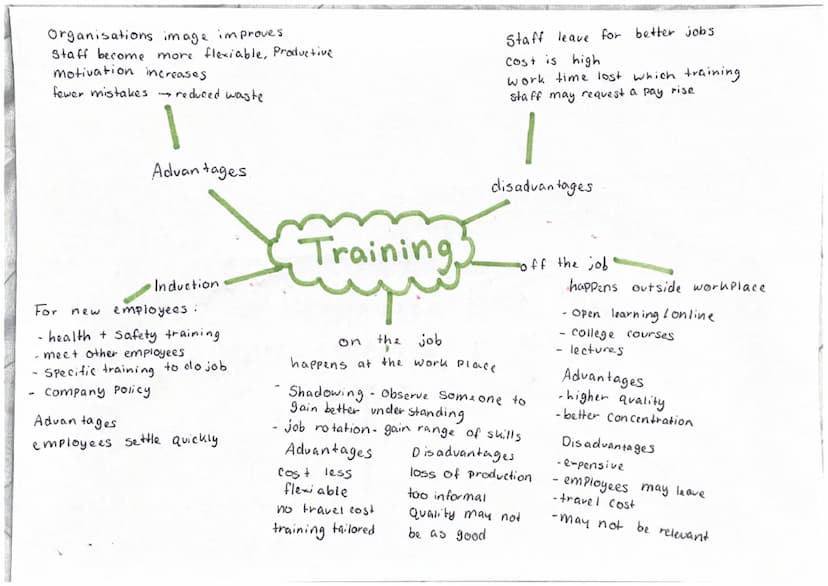 Organisations image improves
Staff become more flexiable, Productive
motivation increases
fewer mistakes → reduced waste
Advantages
Staff leave for better jobs
cost is high
work time lost which training
staff may request a pay rise
disadvantages
Training
Induction
For new employees:
- health + Safety training
- meet other employees
- Specific training to do job
- Company Policy
Advantages
employees settle quickly
on the job
happens at the work place
- Shadowing - observe someone to
gain better understanding
- job rotation - gain range of skills
Advantages
cost less
flexiable
no travel cost
training tailored
Disadvantages
loss of production
too informal
Quality may not
be as good
off the job
happens outside workplace
- open learning/online
- college courses
- lectures
Advantages
- higher quality
- better concentration
Disadvantages
- expensive
- employees may leave
- travel cost
- may not be relevant